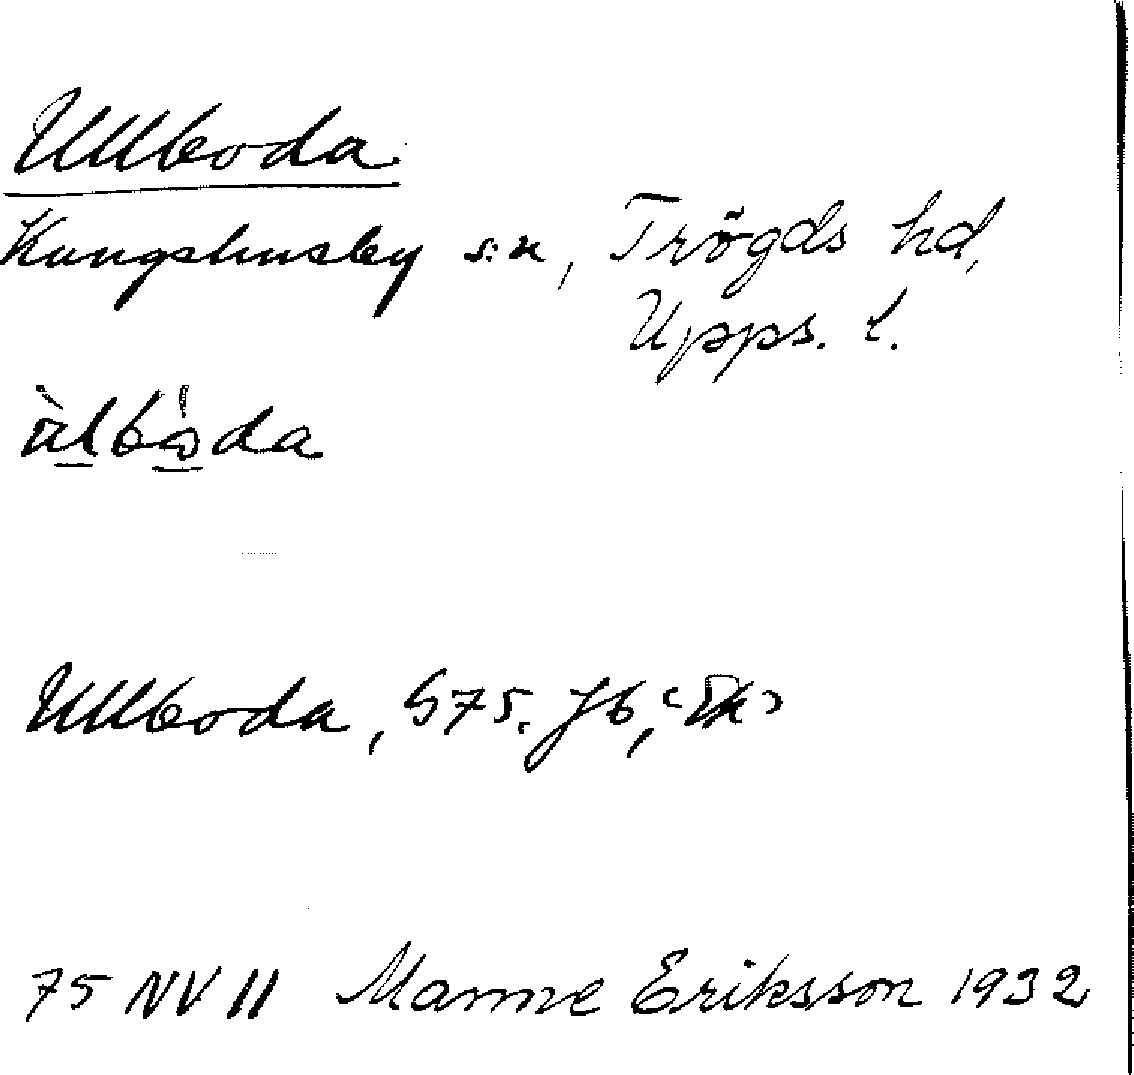 Ullboda
Kungshusby s:n, Trögds hd,
Upps. l.
Ullboda, G75. Jb, Ek
75 NV II Manne Eriksson 1932